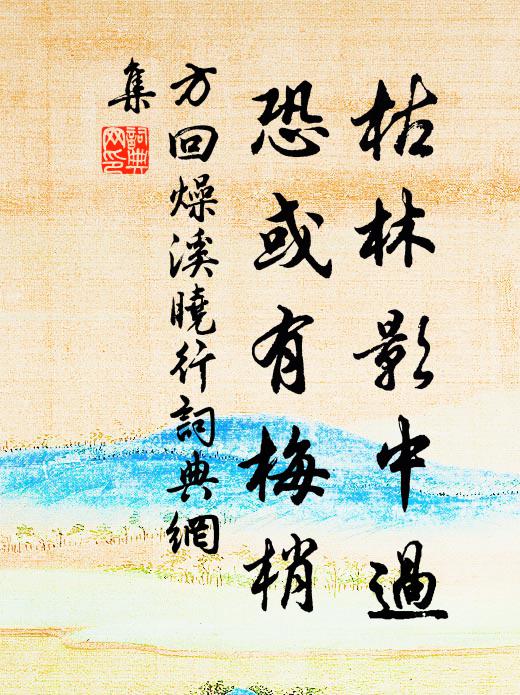 枯林影中過
恐或有梅梢
方回燥溪曉行詞典網
集
詞典网印